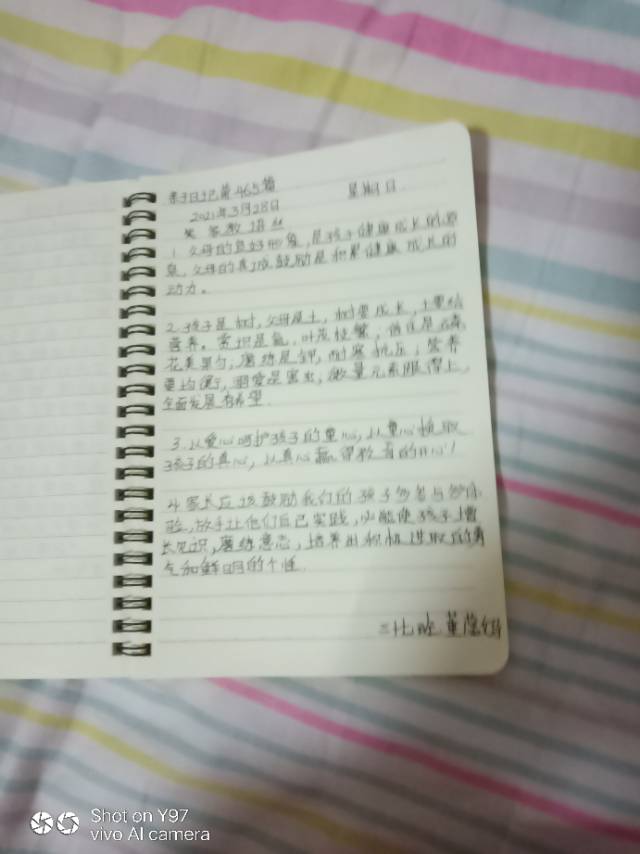 亲子日记第465篇 星期日
2021年3月28日
父母教语丝
1.父母的良好形象,是孩子健康成长的源
泉,父母的真诚鼓励是积累健康成长的
动力。
2.孩子是树,父母是土,树要成长,土要给
营养。赏识是氮,叶茂枝繁,信任是磷
花美果匀,磨练是钾,耐寒抗压,营养
要均衡,溺爱是害虫,微量元素跟得上,
全面发展有希望.
3.从爱心呵护孩子的童心,从童心换取
孩子的真心,从真心赢得教育的开心!
4.家长应该鼓励我们的孩子多参与多体
验,放手让他们自己实践,必能使孩子增
长见识,磨练意志,培养出积极进取的勇
气和鲜明的个性.
三七班
Shot on Y97
vivo AI camera